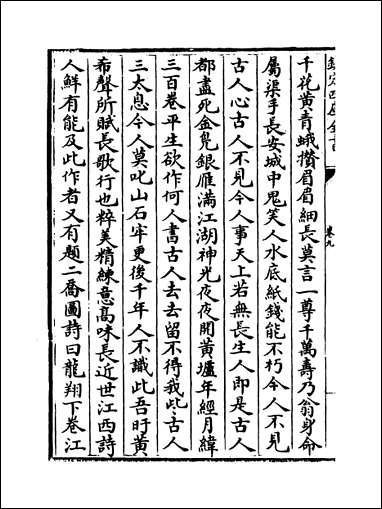 欽定四庫全書
卷九
千花黄青蛾攅眉眉細長莫言一尊千萬壽乃翁身命
屬渠手長安城中鬼笑人水底紙錢能不朽今人不見
古人心古人不見今人事天上若無長生人即是古人
都盡死金鳬銀雁滿江湖神光夜夜開黄壚年經月緯
三百巻平生欲作何人書古人去去留不得我此此古人
三太息今人莫叱山石牢更後千年人不識此吾盱黄
希聲所賦長歌行也粹美精練意髙味長近世江西詩
人鮮有能及此作者又有題二喬圖詩曰龍翔下巻江